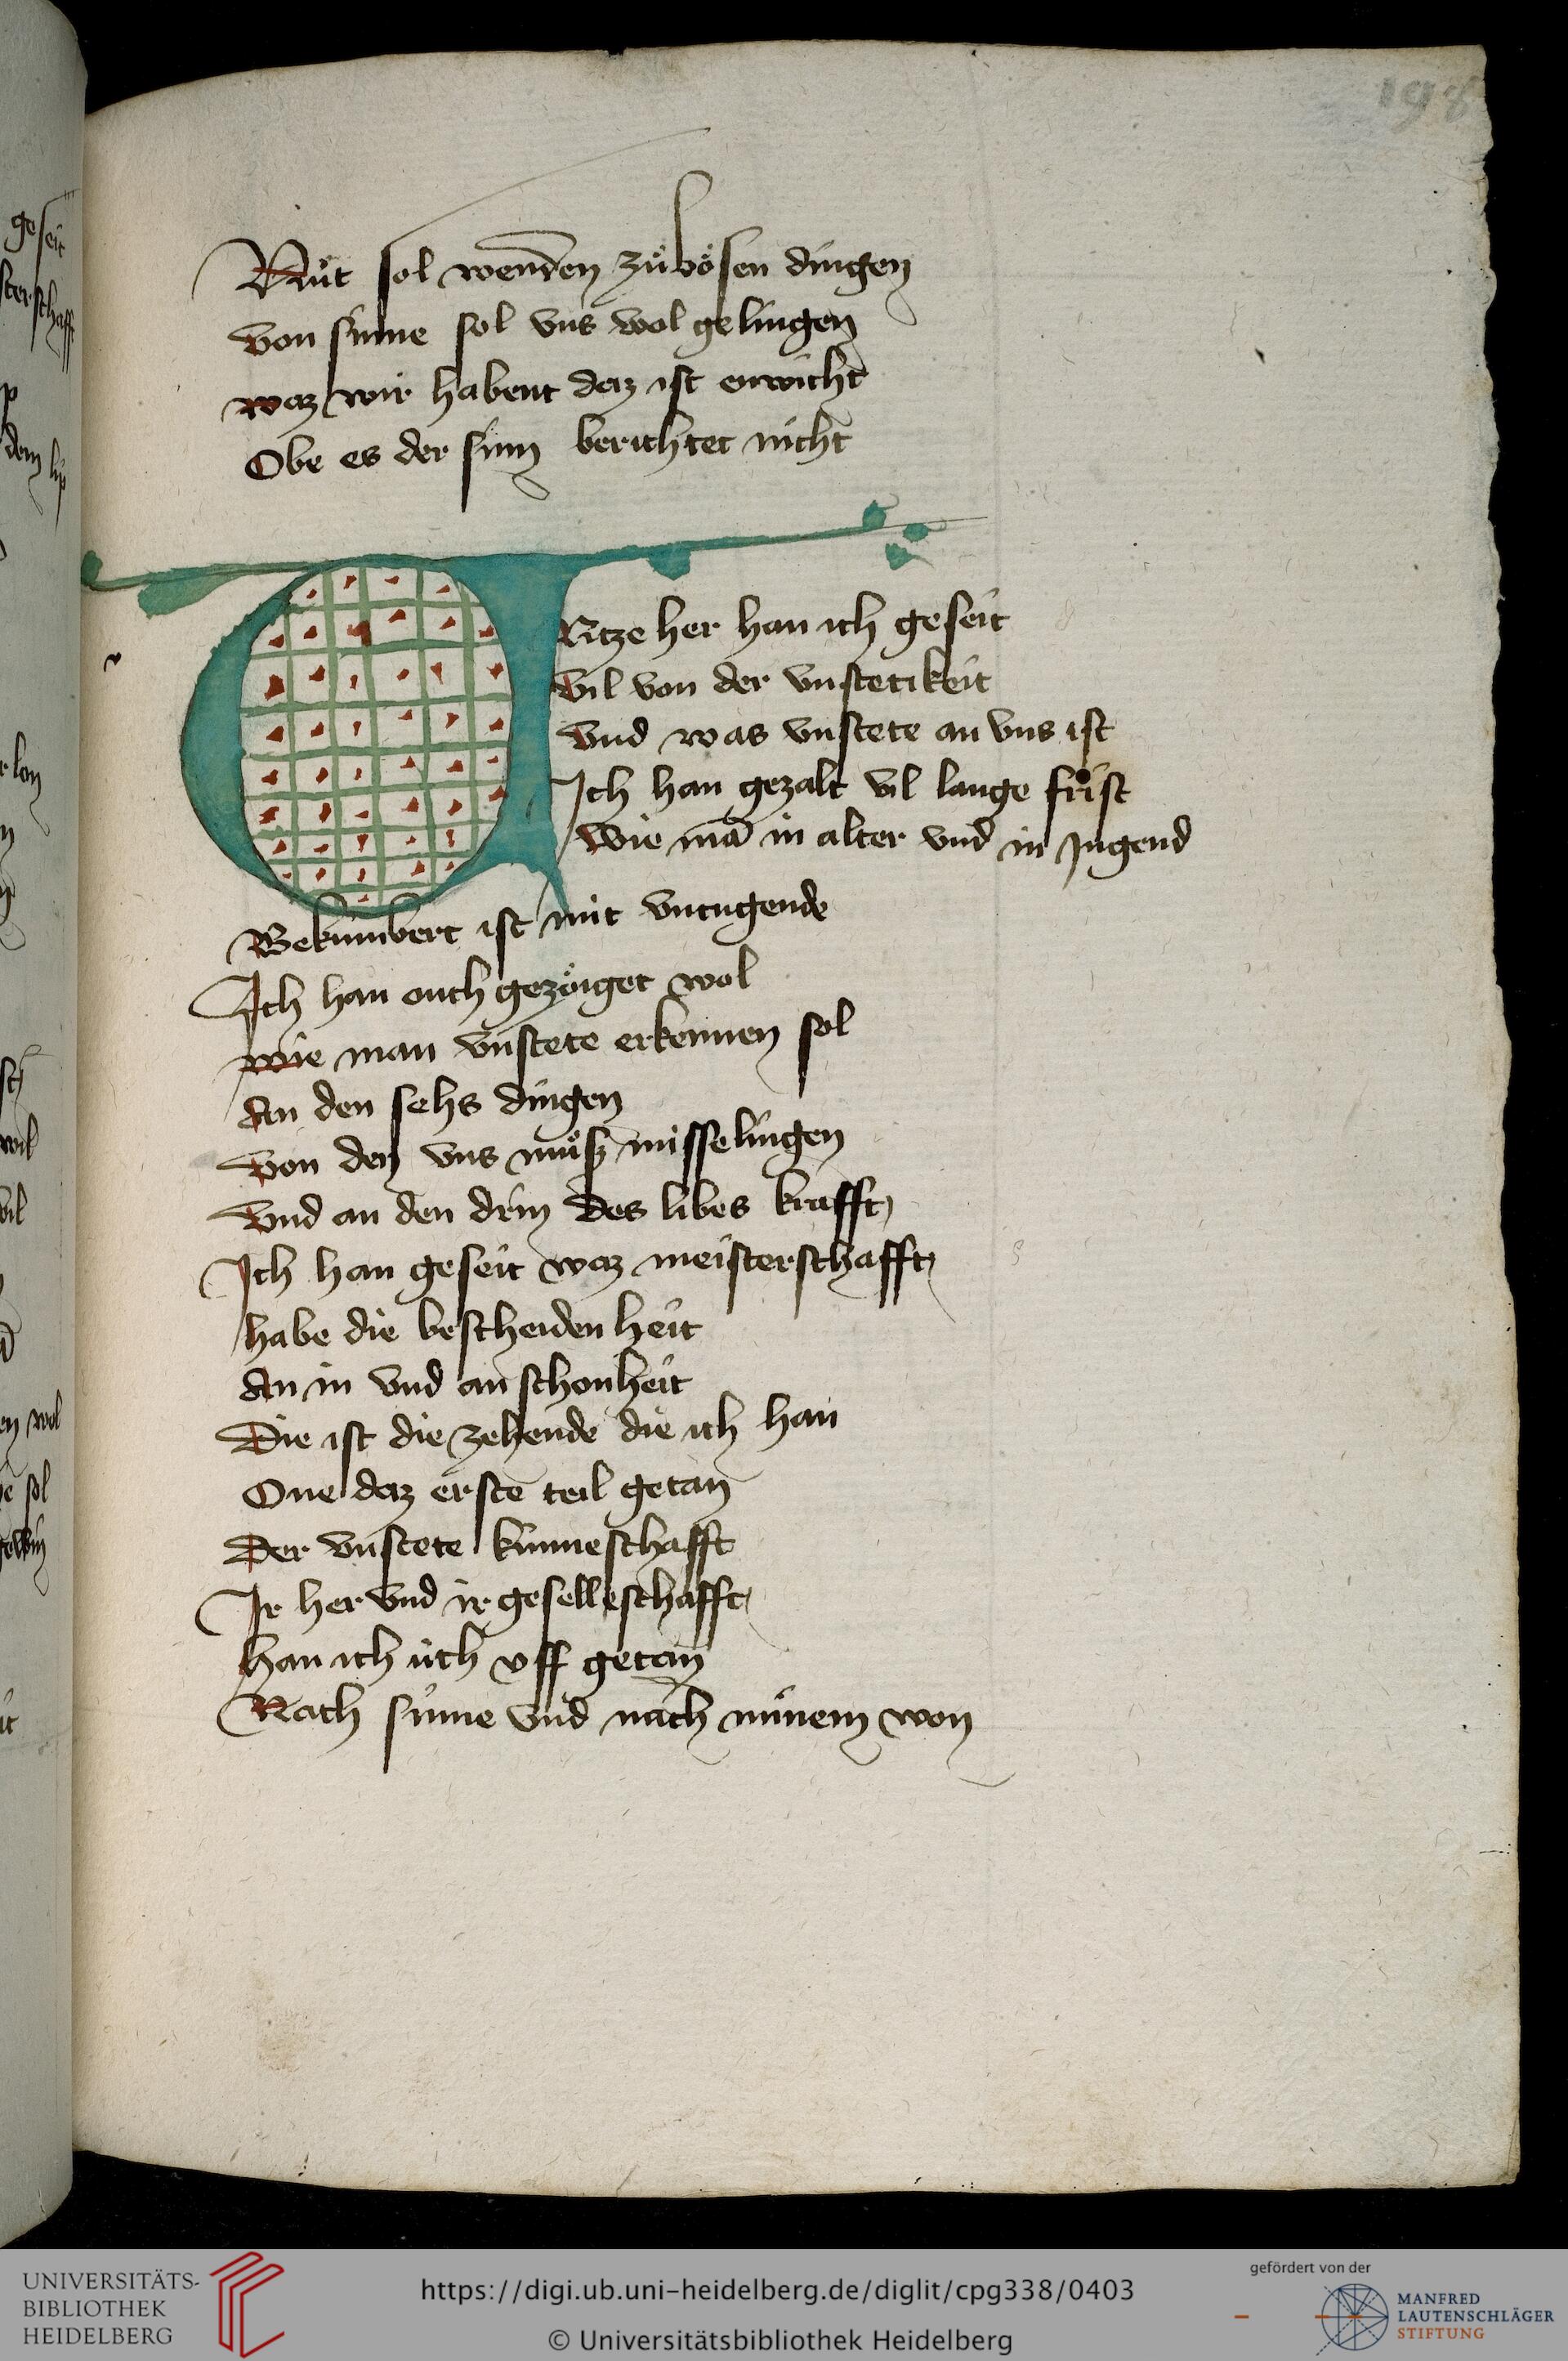 198
Nuͤt sol wenden zuͤ boͤsen dingen
Von sinne sol vns wol gelingen
waz wir habent daz ist enwicht
Obe es der sinn berichtet nicht
UNtze her han ich geseit
Vil von der vnstetikeit
Vnd was vnstete an vns ist
Ich han gezalt vil lange frist
Wie mā in alter vnd in Jugend
Bekúmbert ist mit vntugende
Ich han ouch gezoͤiget wol
wie man vnstete erkennen sol
An den sehs dingen
Von den vns muͤsz misselingen
Vnd an den drin des libes krafft
Ich han geseit waz meisterschafft
habe die bescheidenheit
An in vnd an schonheit
Die ist die zehende die ich han
One daz erste teil getan
Der vnstete kúnneschafft
Ir her vnd ir geselleschafft
han ich úch vff getan
Nach sinne vnd nach minem won
UNIVERSITÄTS-
BIBLIOTHEK
HEIDELBERG
https://digi.ub.uni-heidelberg.de/diglit/cpg338/0403
© Universitätsbibliothek Heidelberg
gefördert von der
MANFRED
LAUTENSCHLÄGER
STIFTUNG